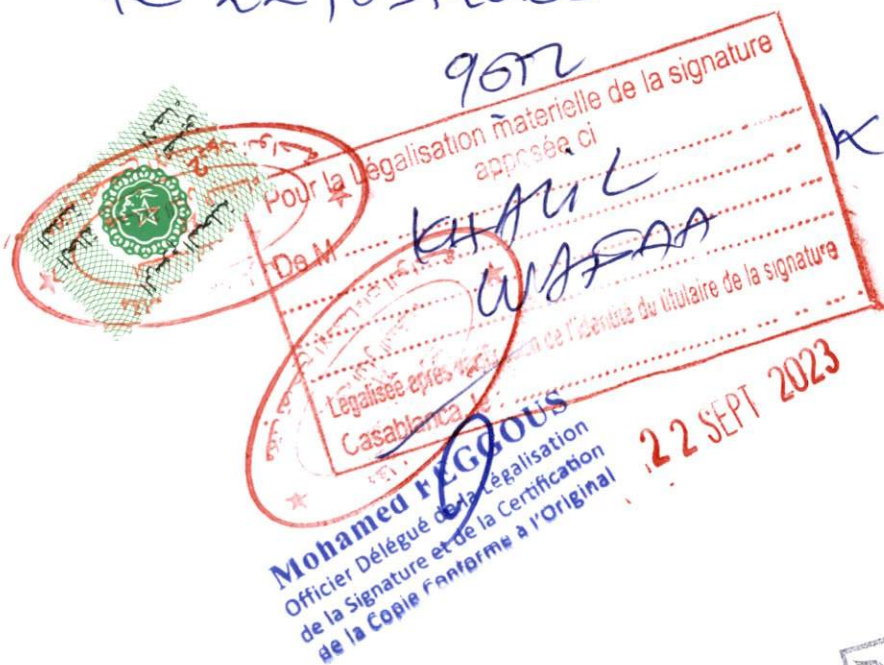 Pour la Légalisation materielle de la signature
apposée ci
De M
KHALIL
WAFAA
Légalisée après de l'identité du titulaire de la signature
Casablanca, le :
22 SEPT 2023
Mohamed FEGGOUS
Officier Délégué de la Légalisation
de la Signature et de la Certification
de la Copie Conforme à l'Original